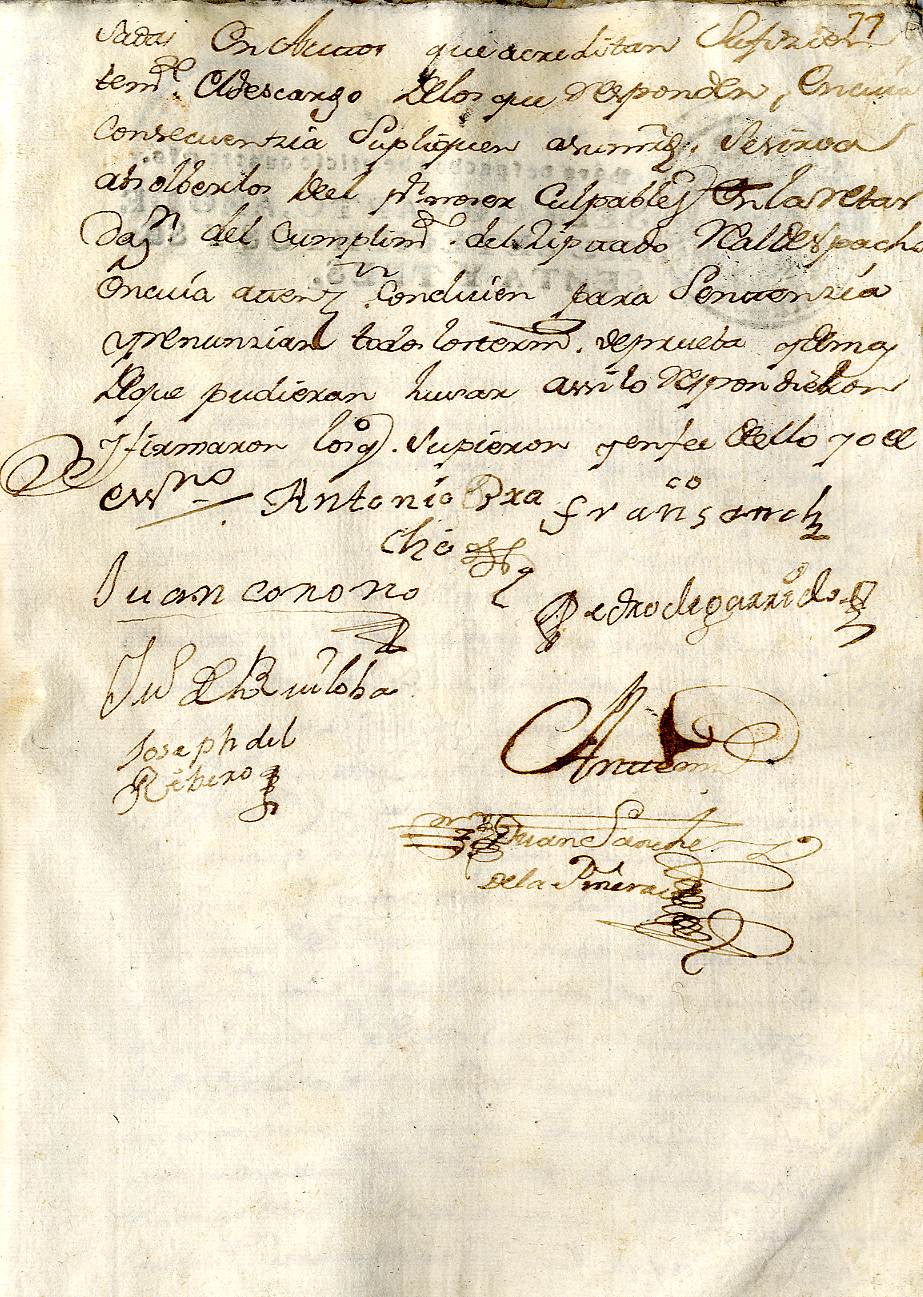 77
sadas En los autos que acreditan Sufizien
temte. El descargo Delos que responden, En cuia
Consecuenzia Supliquen asumrd. Sesirva
absolberlos Del pr. noser Culpables En la retar
dazn del Cumplimto. del Zitado Real despacho
En cuia attenzn Concluien para Sentenzia
y renunzian todos los termos. de prueba y demas
De que pudieran husar assi lo respondieron
y firmaron los q. supieron y en fee de ello yo el
essno
Antonio Bra
cho
franco sanchz
Juan conono
Pedro de garrido
Ju de la Villoba
Joseph del
Ribero
Anttemi
Juan Sanche
de la